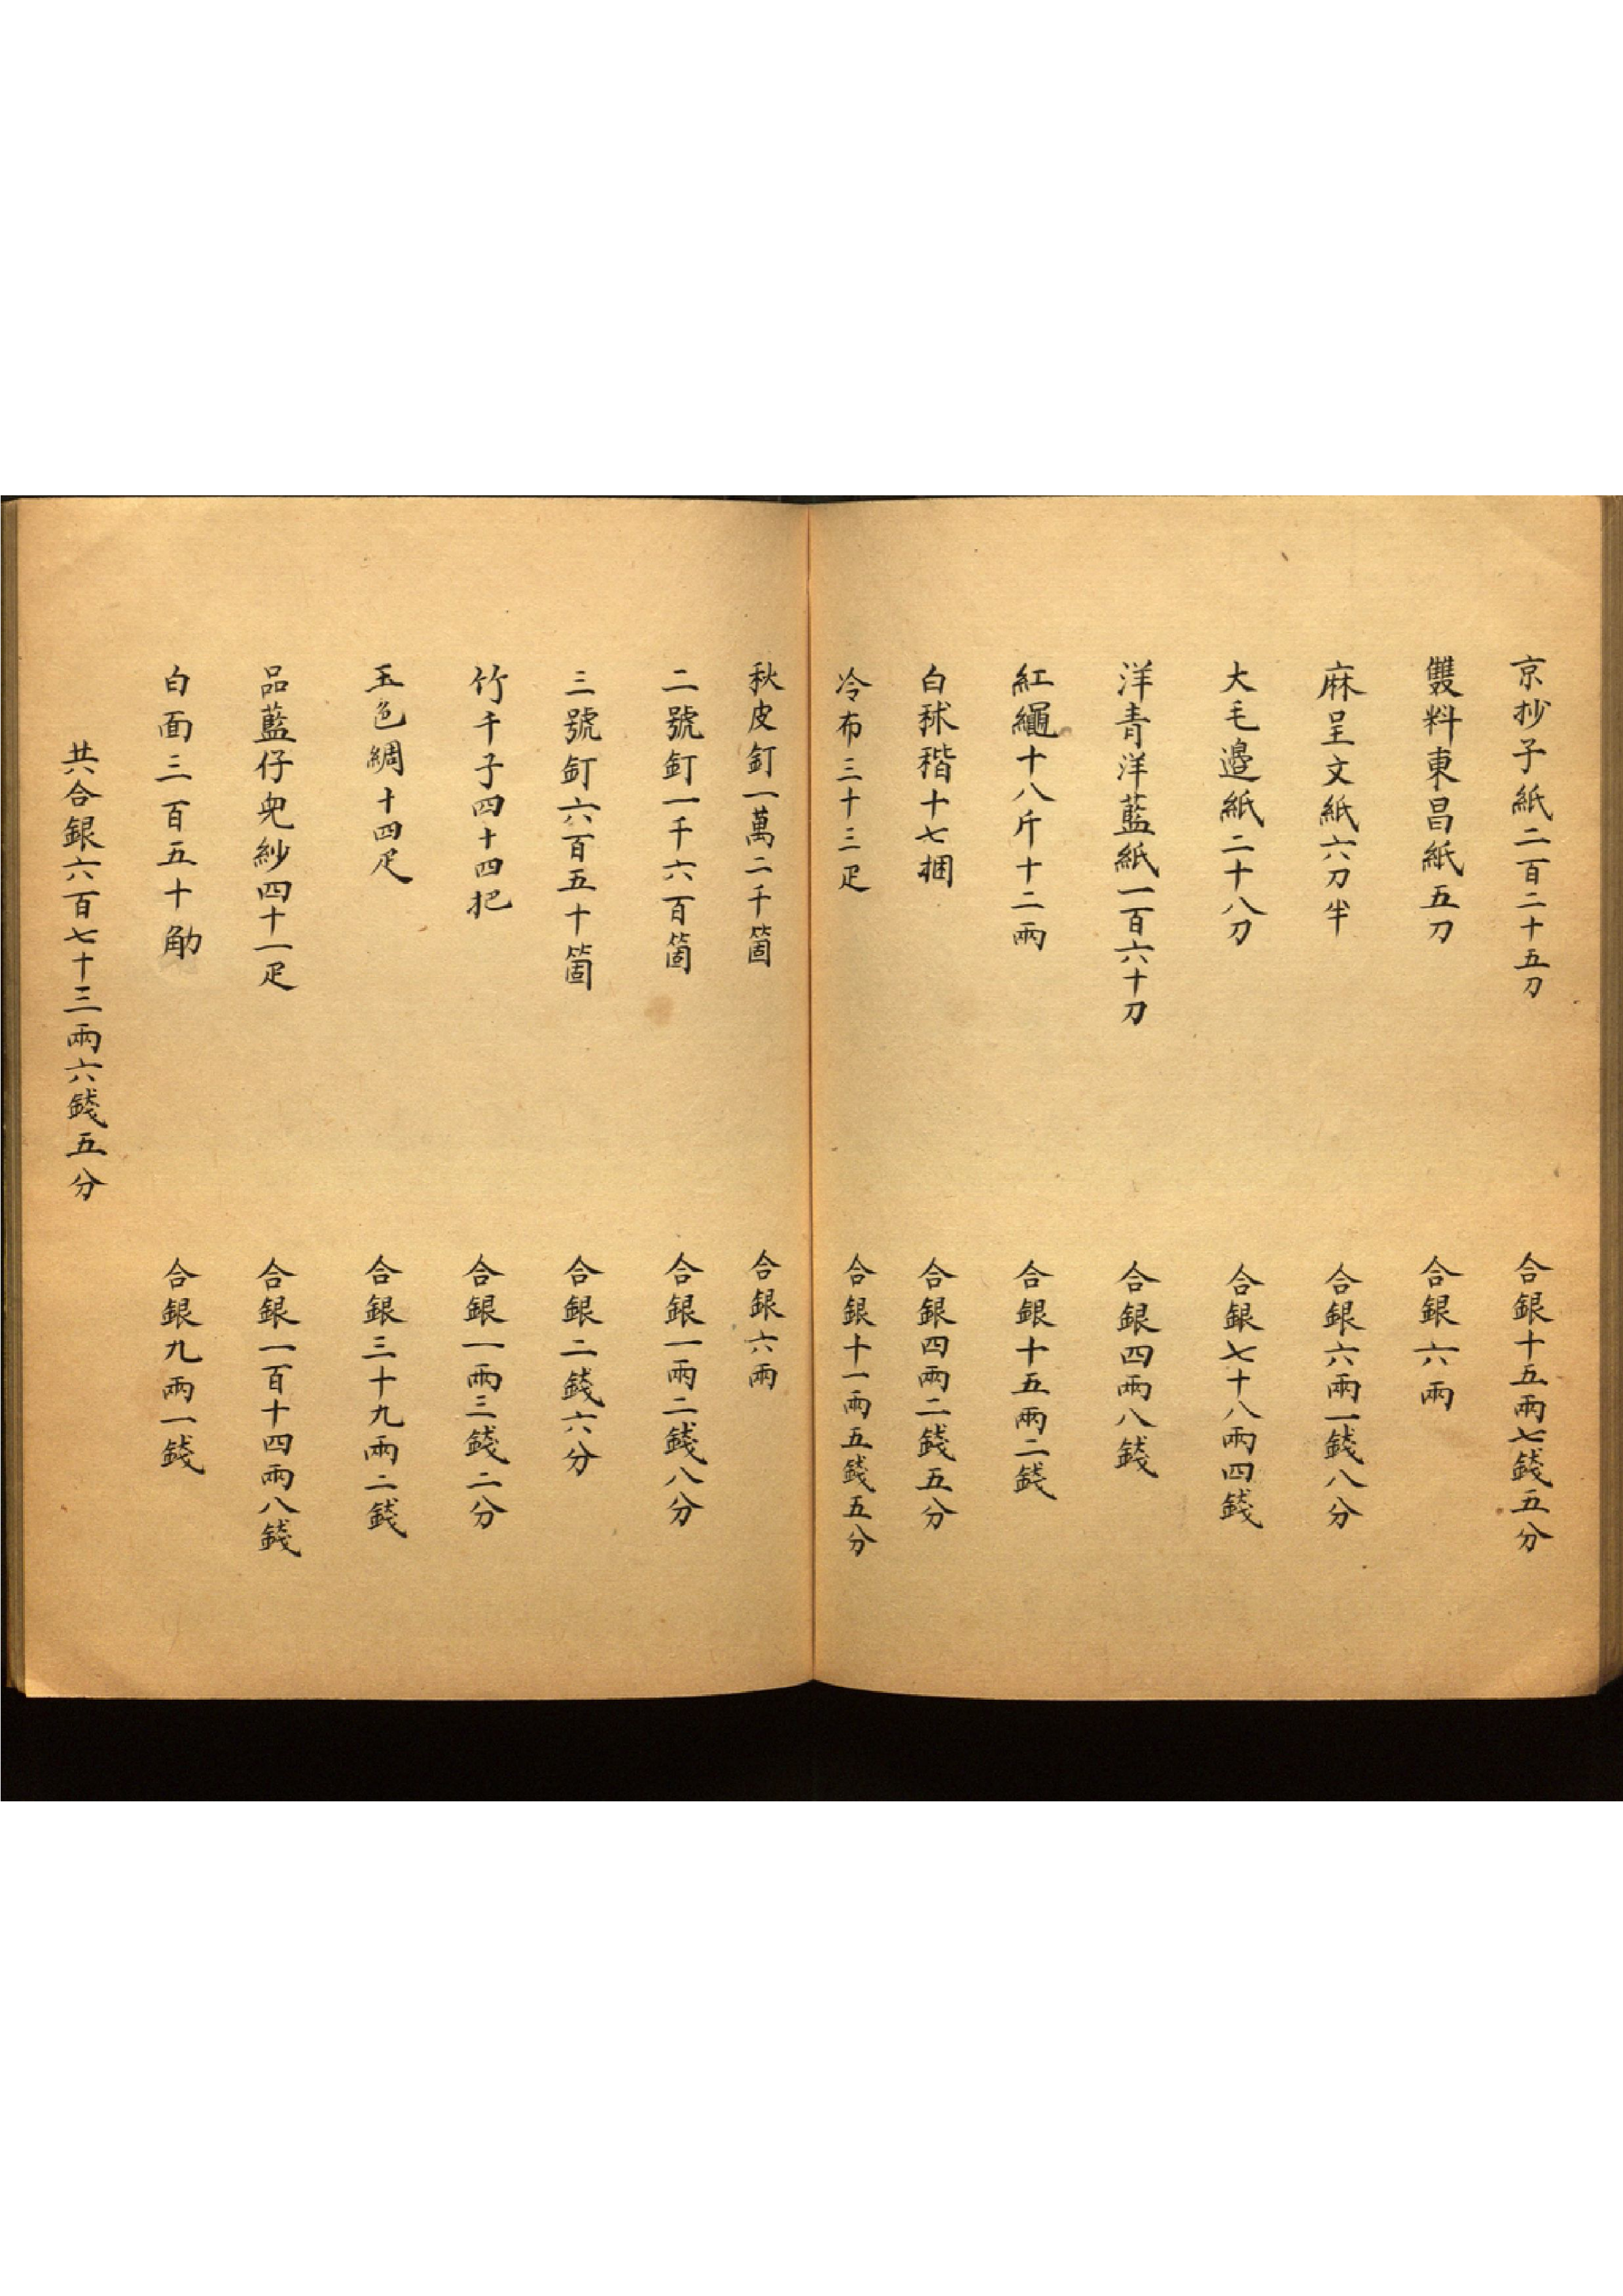 京抄子紙二百二十五刀　合銀十五兩七錢五分
雙料東昌紙五刀　合銀六兩
麻呈文紙六刀半　合銀六兩一錢八分
大毛邊紙二十八刀　合銀七十八兩四錢
洋青洋藍紙一百六十刀　合銀四兩八錢
紅繩十八斤十二兩　合銀十五兩二錢
白秫稭十七捆　合銀四兩二錢五分
冷布三十三疋　合銀十一兩五錢五分
秋皮釘一萬二千箇　合銀六兩
二號釘一千六百箇　合銀一兩二錢八分
三號釘六百五十箇　合銀二錢六分
竹千子四十四把　合銀一兩三錢二分
玉色綢十四疋　合銀三十九兩二錢
品藍仔兜紗四十一疋　合銀一百十四兩八錢
白面三百五十觔　合銀九兩一錢
共合銀六百七十三兩六錢五分